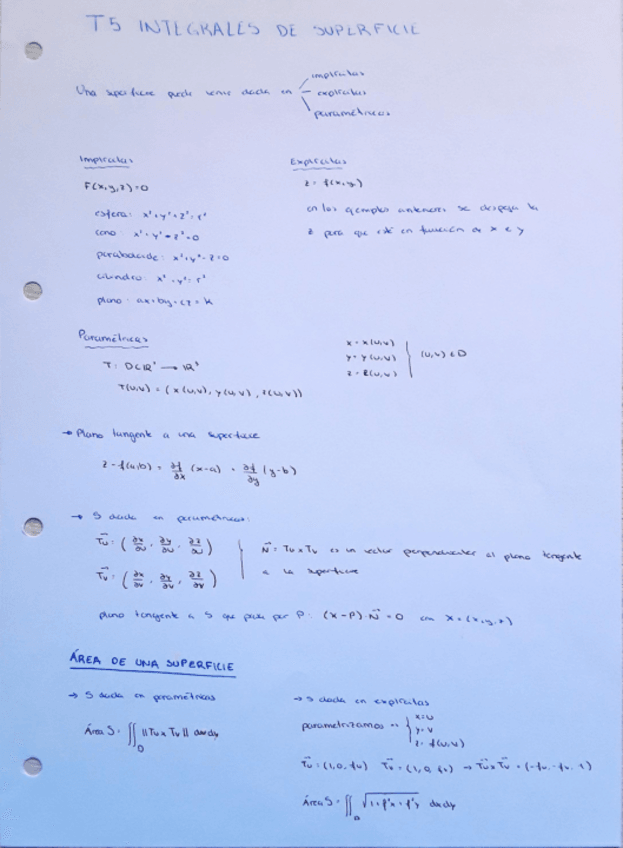 T5 INTEGRALES DE SUPERFICIE
Una superficie puede venir dada en
implícitas
explícitas
paramétricas
Implícitas
F(x,y,z)=0
esfera: x²+y²+z²=r²
cono: x²+y²=z²=0
paraboloide: x²+y²-z=0
cilindro: x²+y²=r²
plano: ax+by+cz=k
Explícitas
z=f(x,y)
en los ejemplos anteriores se despeja la
z para que esté en función de x e y
Paramétricas
T: D⊂ℝ² → ℝ³
T(u,v) = (x(u,v), y(u,v), z(u,v))
x = x(u,v)
y = y(u,v)
z = z(u,v)
(u,v) ∈ D
→ Plano tangente a una superficie
z - f(a,b) = ∂f/∂x (x-a) + ∂f/∂y (y-b)
→ S dada en paramétricas:
Tu = (∂x/∂u, ∂y/∂u, ∂z/∂u)
Tv = (∂x/∂v, ∂y/∂v, ∂z/∂v)
N = Tu x Tv es un vector perpendicular al plano tangente
a la superficie
plano tangente a S que pasa por P: (x-P)·N = 0 con X=(x,y,z)
ÁREA DE UNA SUPERFICIE
→ S dada en paramétricas
Área S = ∬D ||Tu x Tv|| du dv
→ S dada en explícitas
parametrizamos
x=u
y=v
z=f(u,v)
Tu = (1,0,fu) Tv = (1,0,fv) → Tu x Tv = (-fu,-fv,1)
Área S = ∬D √(1+f²x+f²y) dx dy